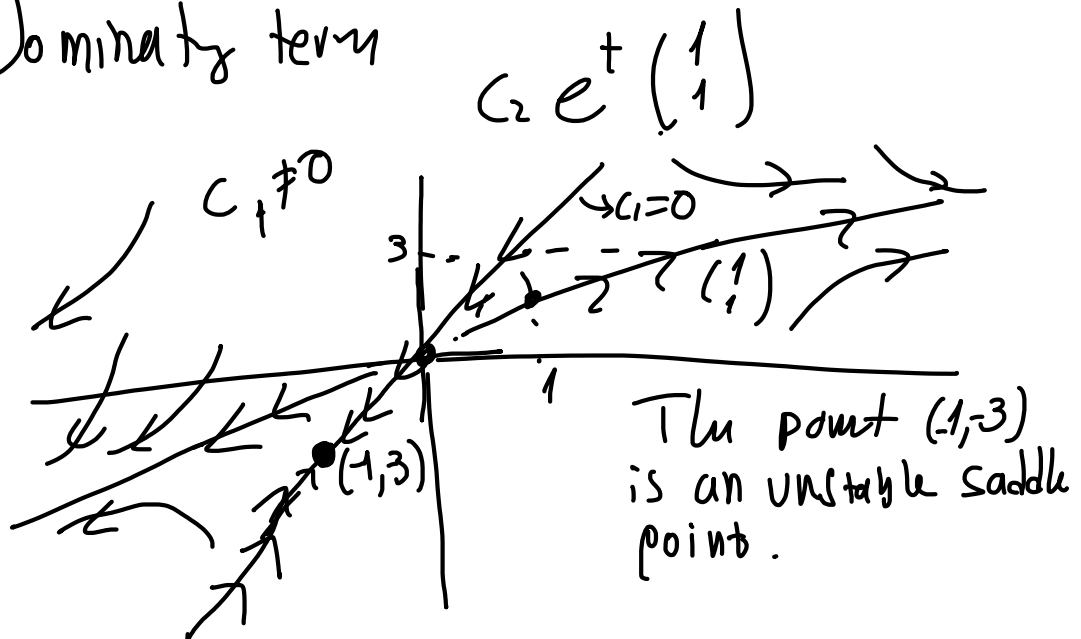 Dominaty term
C₂ e^t (1 1)
C₁ ≠ 0
→ C₁=0
3
(1 1)
1
(-1,3)
The point (-1,-3)
is an unstable saddle
point.